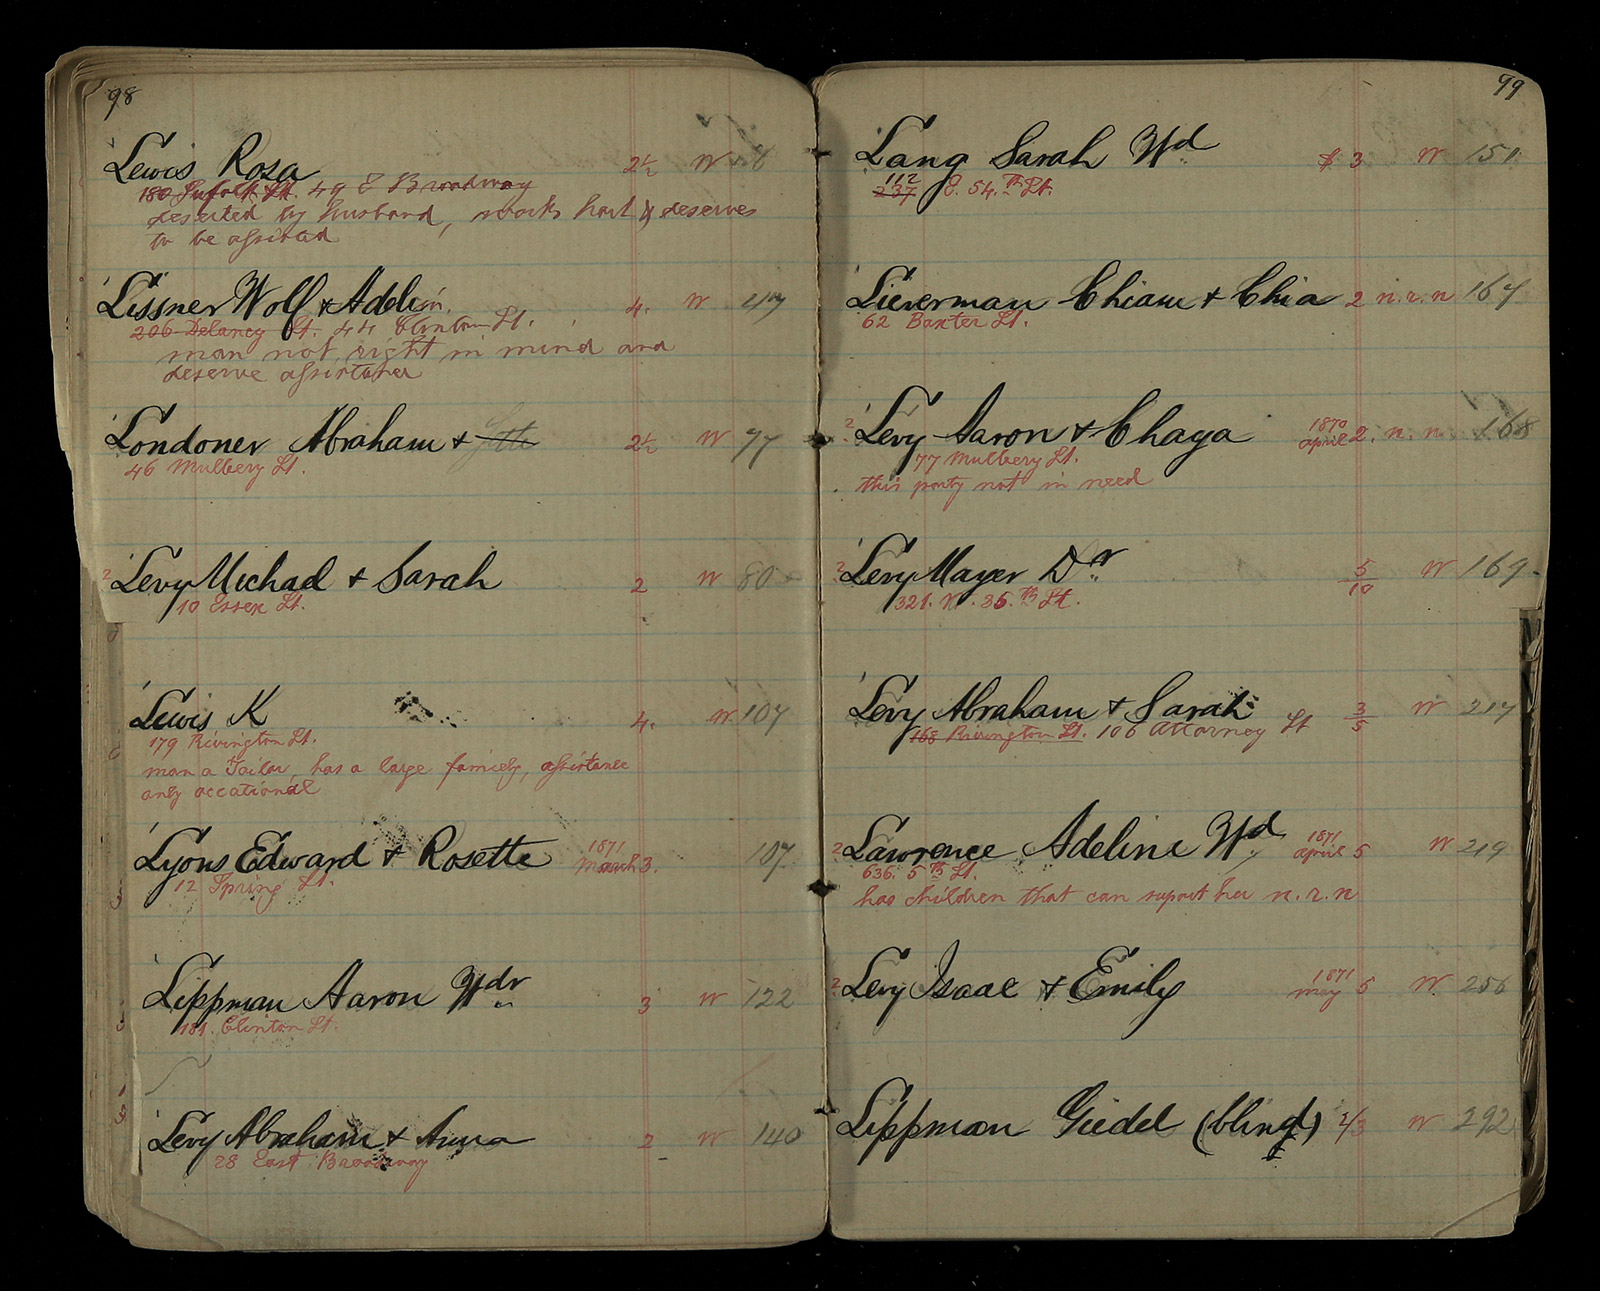 98
Lewis Rosa 2½ W
180 Suffolk St. 49 E Broadway
deserted by husband, works hart & deserves
to be assisted
Lissner Wolf & Adelin. 4. W 47
206 Delancy St. 44 Clinton St.
man not right in mind and
deserve assistance
Londoner Abraham & 2½ W 77
46 Mulbery St.
2 Levy Michael & Sarah 2 W 80
10 Essex St.
Lewis K 4. W 107
179 Rivington St.
man a Tailor, has a large family, assistance
only occational
Lyons Edward & Rosette 1871 March 3. 107
12 Spring St.
Lippman Aaron Wdr 3 W 122
181. Clinton St.
Levy Abraham & Anna 2 W 140
28 East Broadway
99
Lang Sarah Wd $ 3 W 151
112
237 E. 54.th St.
Lieverman Chiam & Chia 2 n.r.n 167
62 Baxter St.
2 Levy Aaron & Chaya 1870 april 2. n. n 168
77 Mulbery St.
this party not in need
2 Levy Mayer Dr 5/10 W 169
321. W. 36.th St.
Levy Abraham & Sarah 3/5 W 217
168 Rivington St. 106 Attorney St
2 Lawrence Adeline Wd 1871 april 5 W 219
636. 5th St.
has children that can suport her n.r.n
2 Levy Isaac & Emily 1871 may 5 W 256
Lippman Giedel (blind) 2/3 W 292